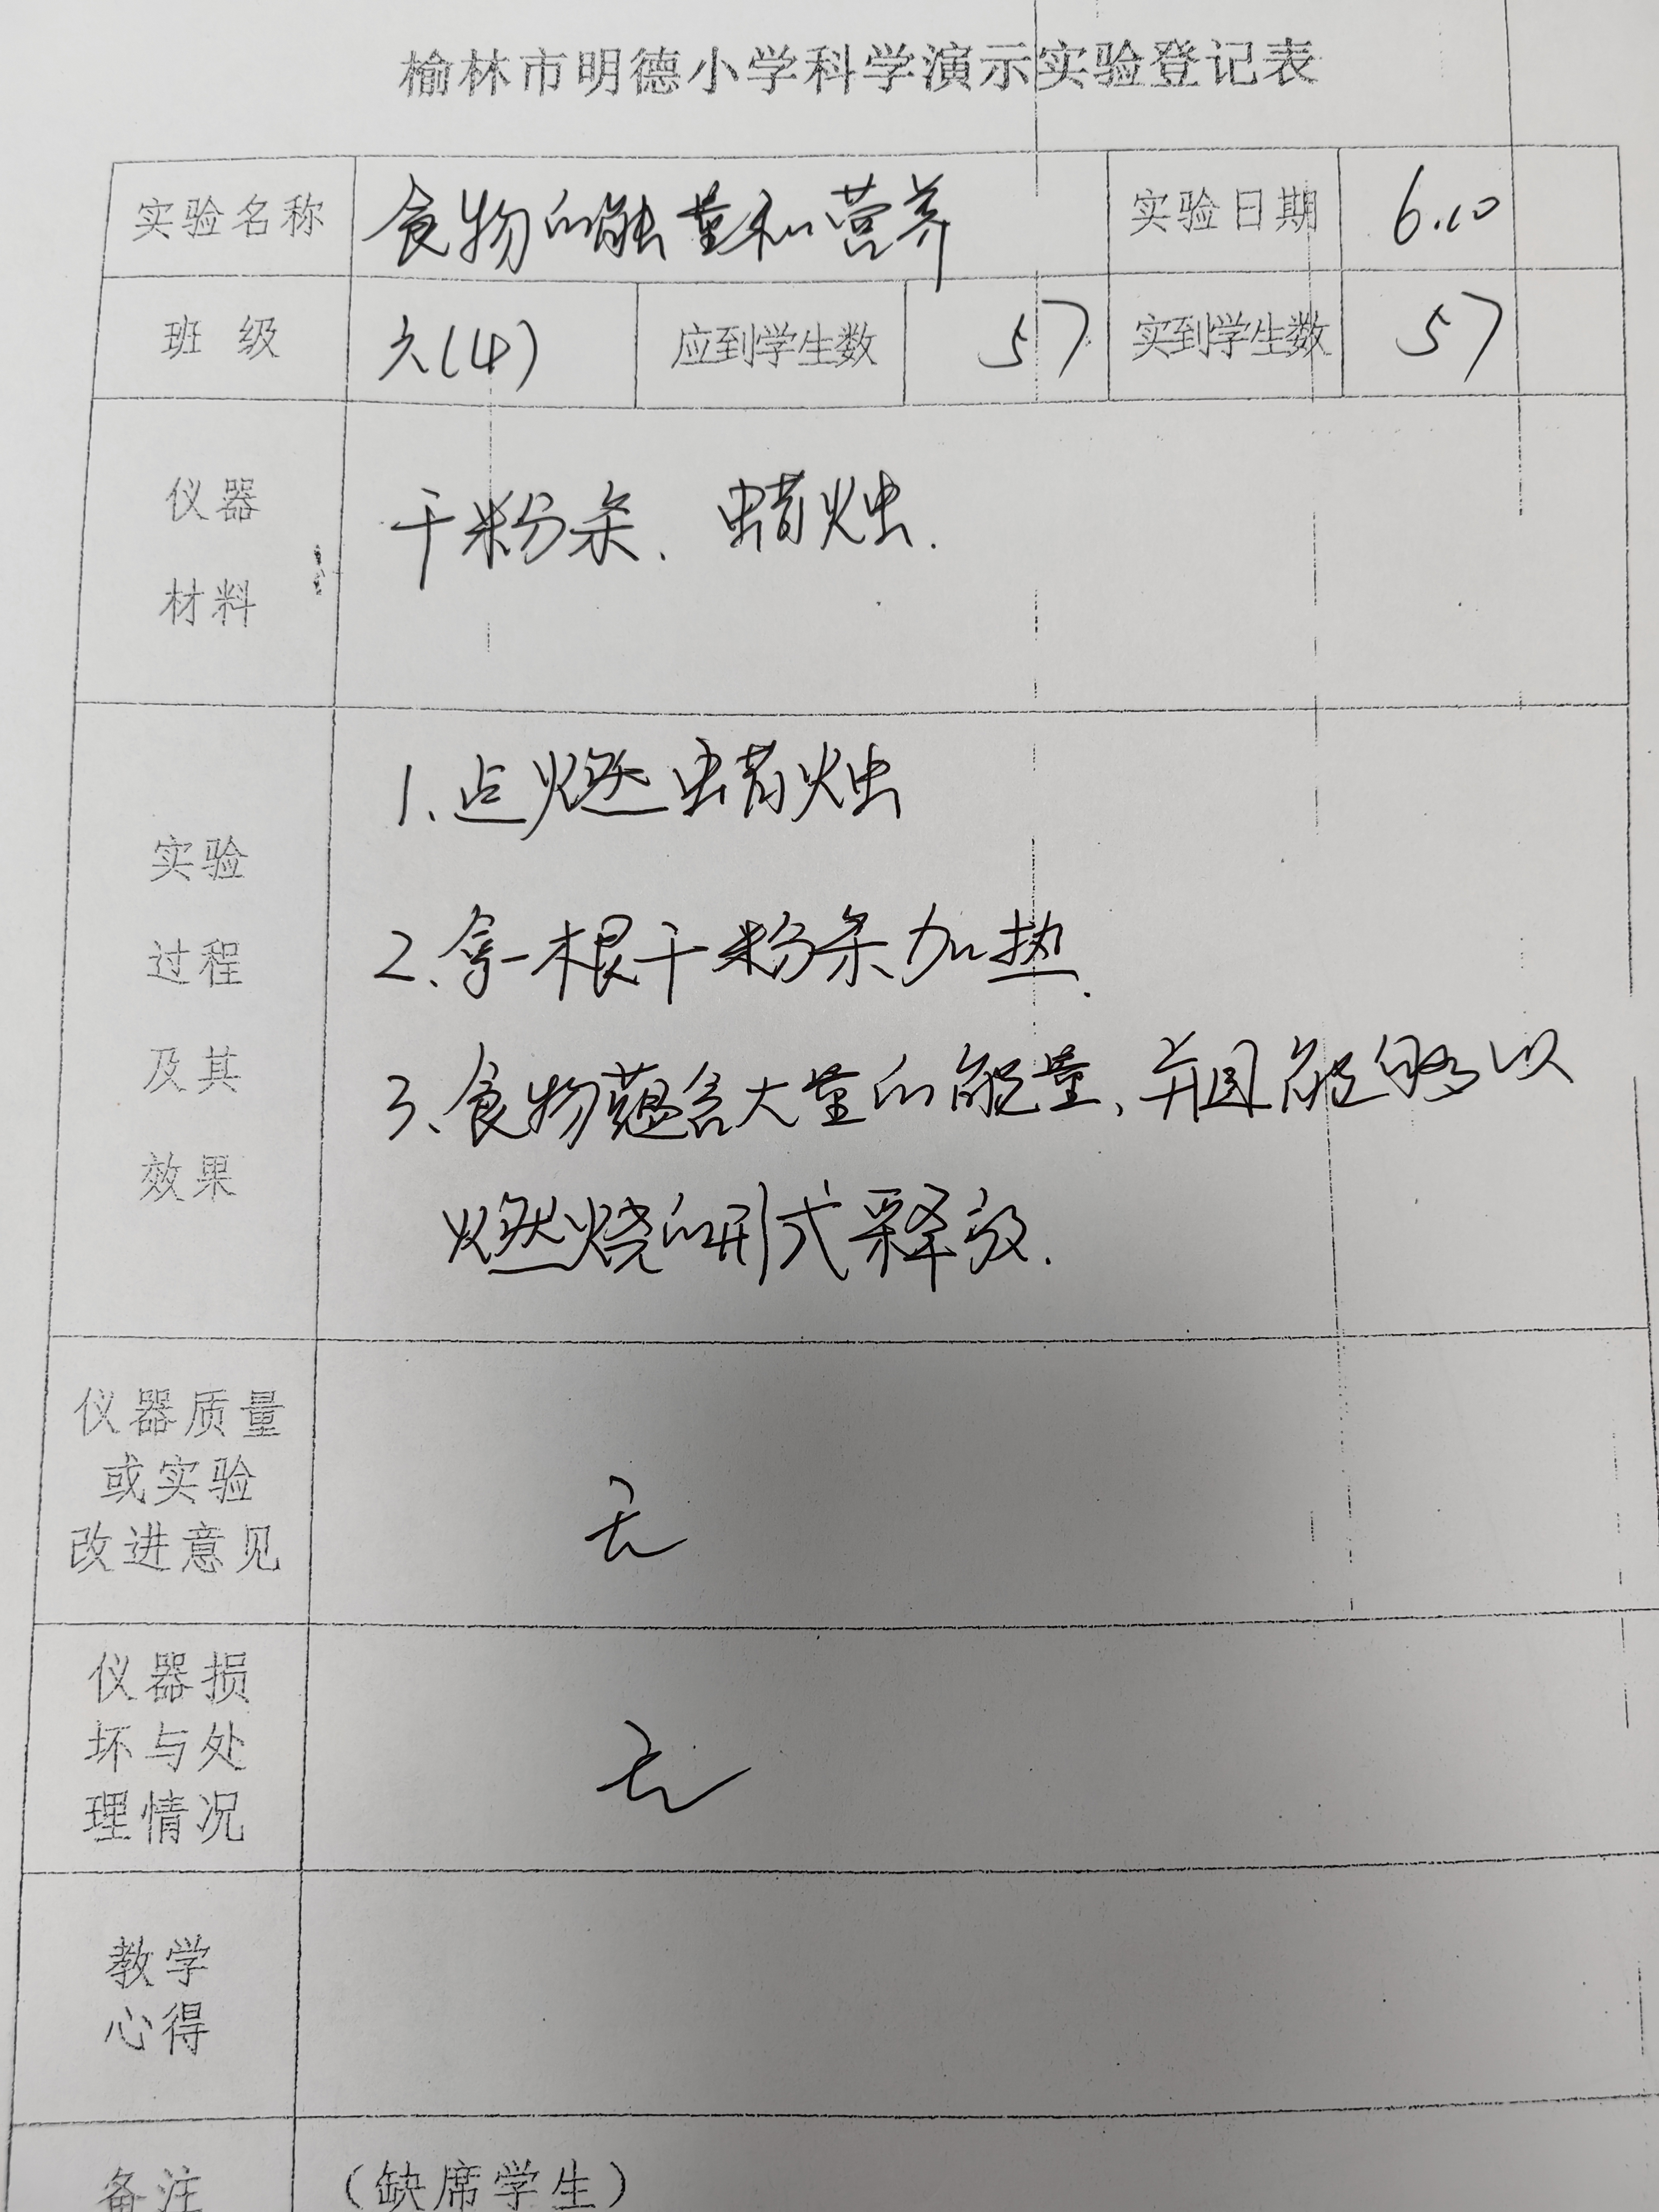 榆林市明德小学科学演示实验登记表
实验名称 食物的能量和营养 实验日期 6.10
班级 六(4) 应到学生数 57 实到学生数 57
仪器
材料
干粉条、蜡烛.
实验
过程
及其
效果
1、点燃蜡烛
2、拿一根干粉条加热.
3、食物蕴含大量的能量、并且能够以
燃烧的形式释放.
仪器质量
或实验
改进意见
无
仪器损
坏与处
理情况
无
教学
心得
备注 (缺席学生)